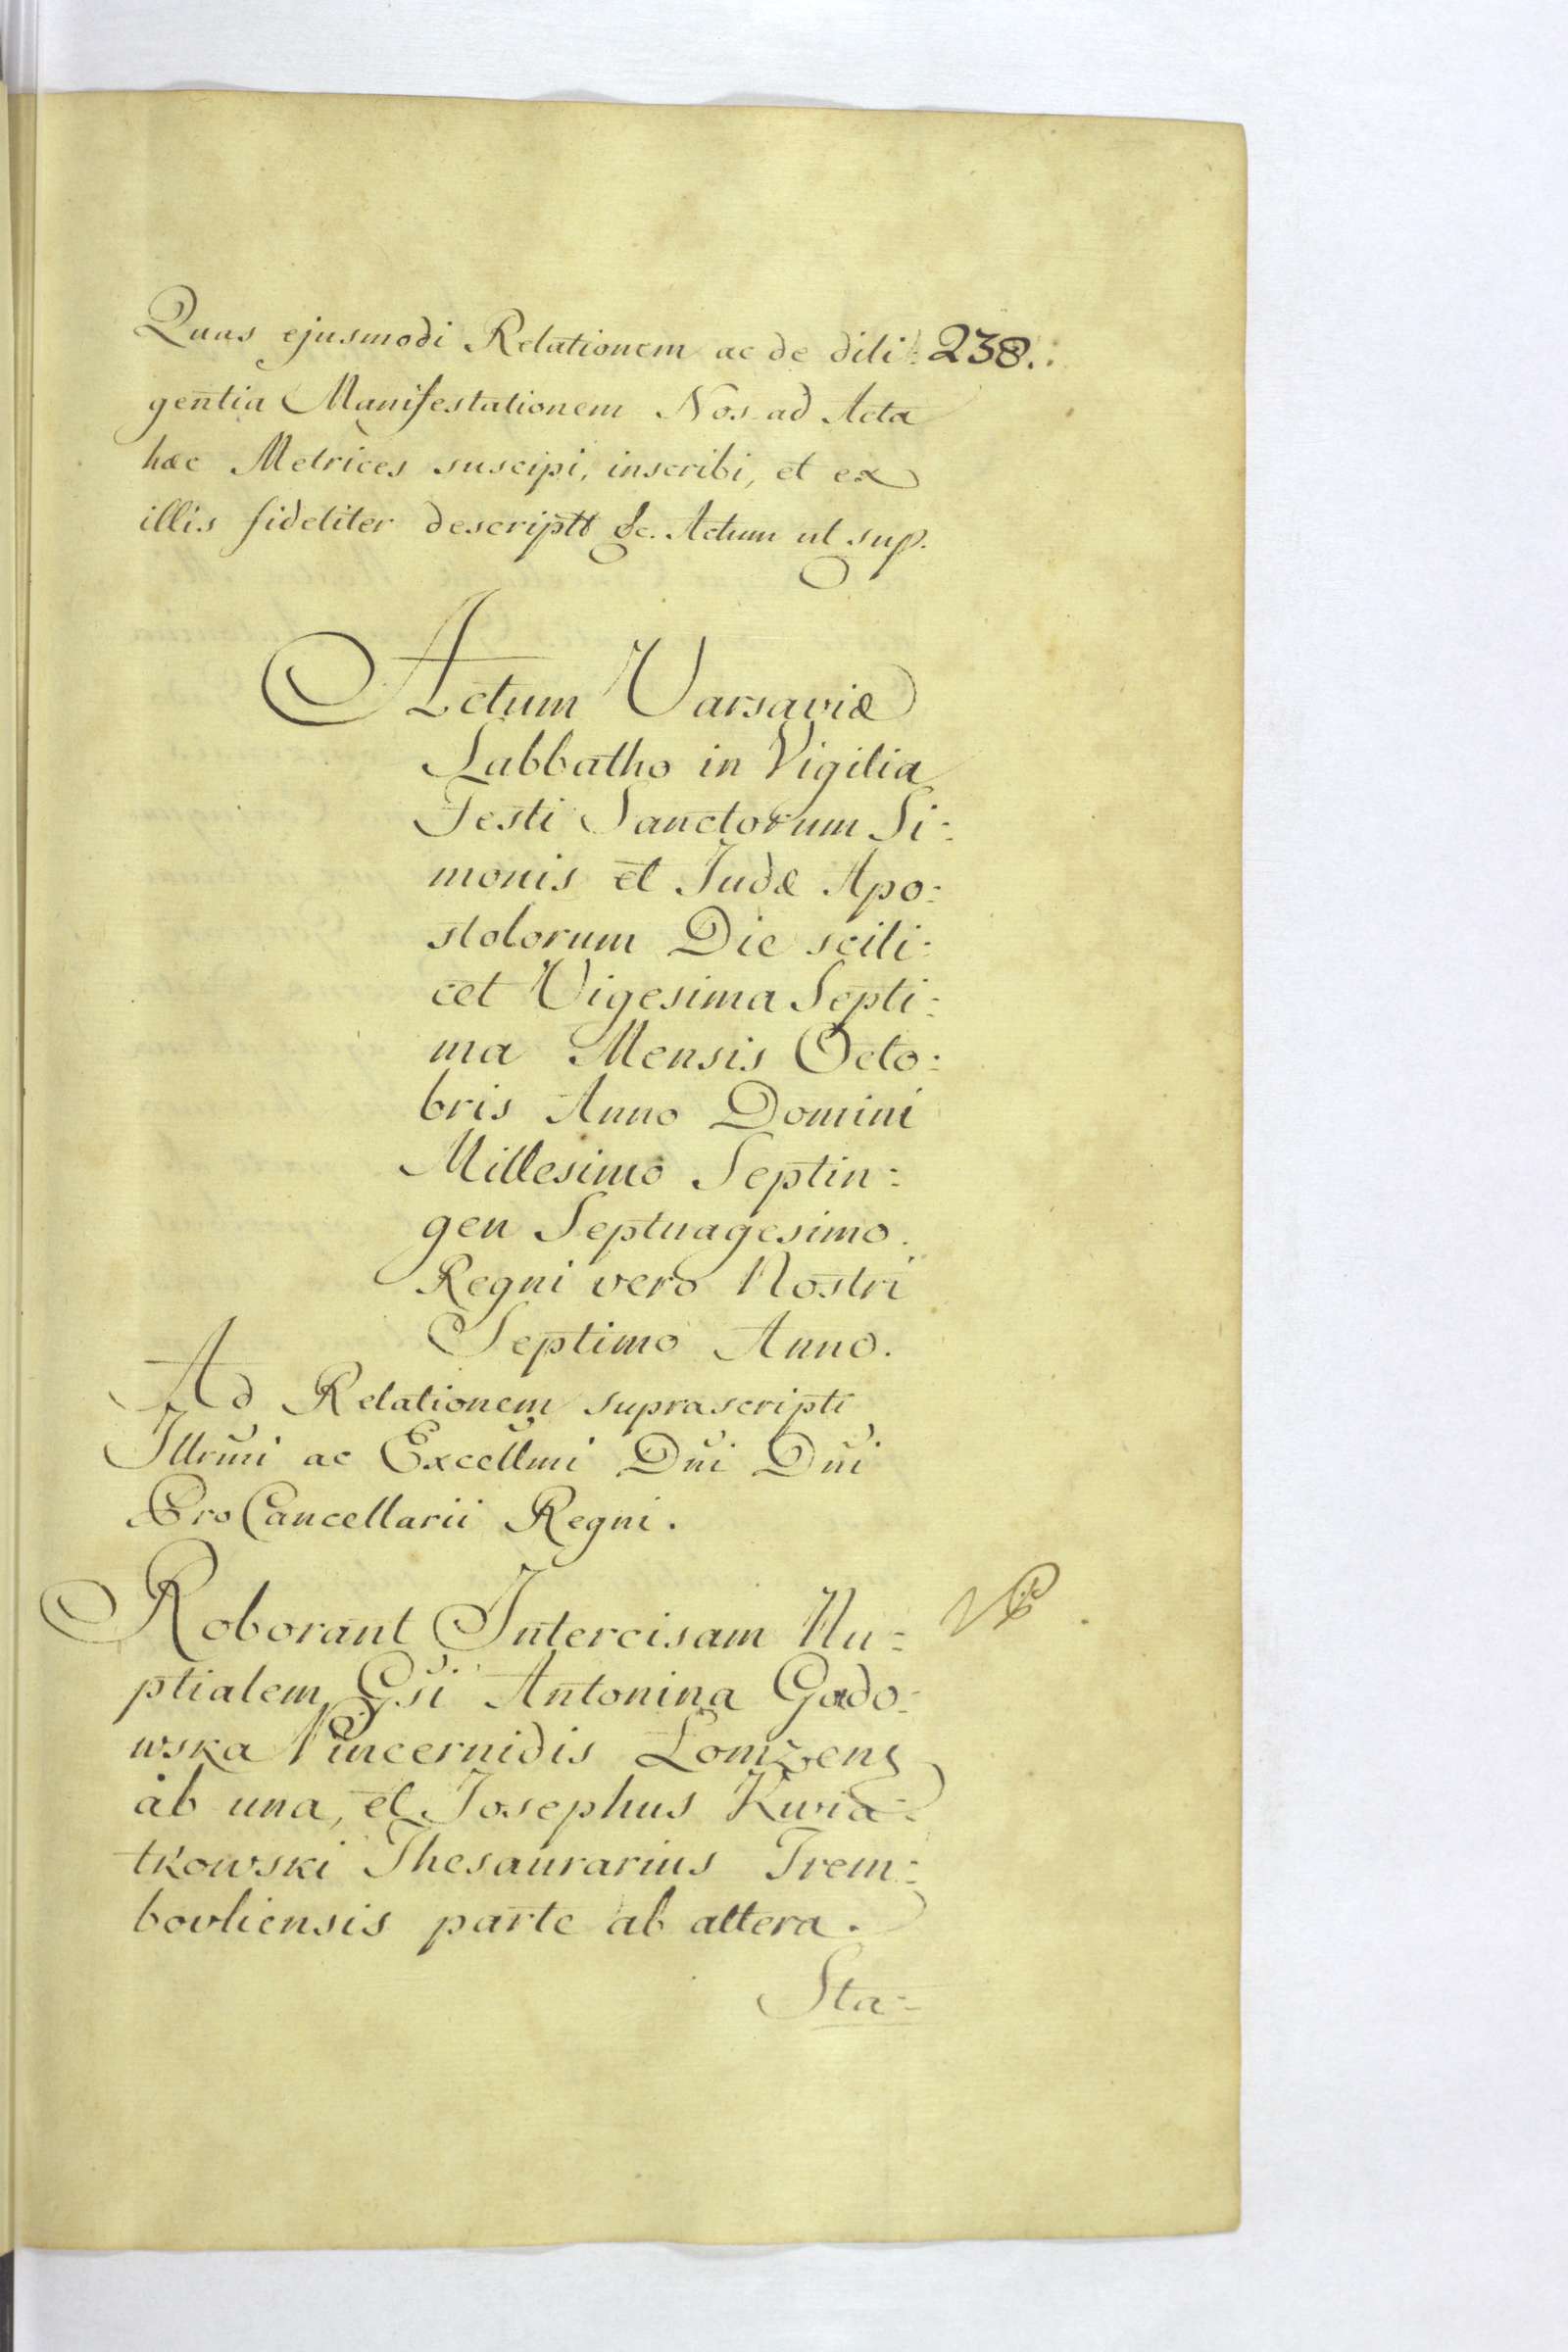 Quas ejusmodi Relationem ac de dili: 238.
gentia Manifestationem Nos ad Acta
hæc Metrices suscipi, inscribi, et ex
illis fideliter descriptt &c. Actum ut sup.
Actum Varsaviæ
Sabbatho in Vigilia
Festi Sanctorum Si:
monis et Judæ Apo:
stolorum Die scili:
cet Vigesima Septi:
ma Mensis Octo:
bris Anno Domini
Millesimo Septin:
gen Septuagesimo.
Regni vero Nostri
Septimo Anno.
Ad Relationem suprascripti
Illrmi ac Excellmi Dni Dni
ProCancellarii Regni.
Roborant Intercisam Nu:
ptialem Gsi Antonina Godo:
wska Pincernidis Lomzens
ab una, et Josephus Kwia:
tkowski Thesaurarius Trem:
bovliensis parte ab altera.
Sta: